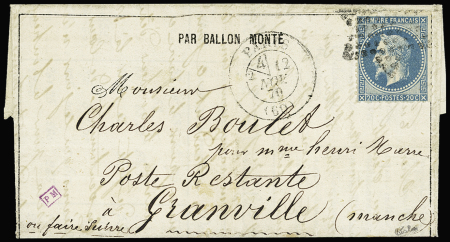 EMPIRE FRANÇAIS
20C POSTES 20C
PAR BALLON MONTÉ
PARIS
12
NOV.
70
(60)
Monsieur
Charles Boulet
pour mme henri
Poste Restante
à
Granville (manche)
PM
ou faire suivre